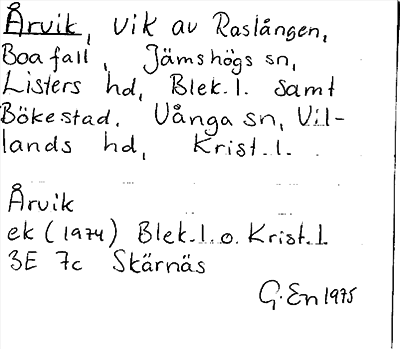 Årvik, vik av Raslången,
Boafall, Jämshögs sn,
Listers hd, Blek.l. samt
Bökestad. Vånga sn, Vil-
lands hd, Krist.l.
Årvik
ek (1974) Blek.l.o. Krist.l
3E 7c Skärnäs
G.En 1975